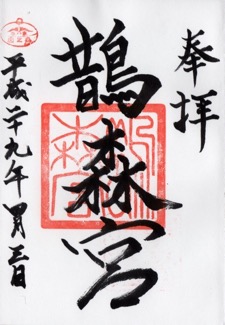 奉拝
鵲森宮
平成二十九年四月三日